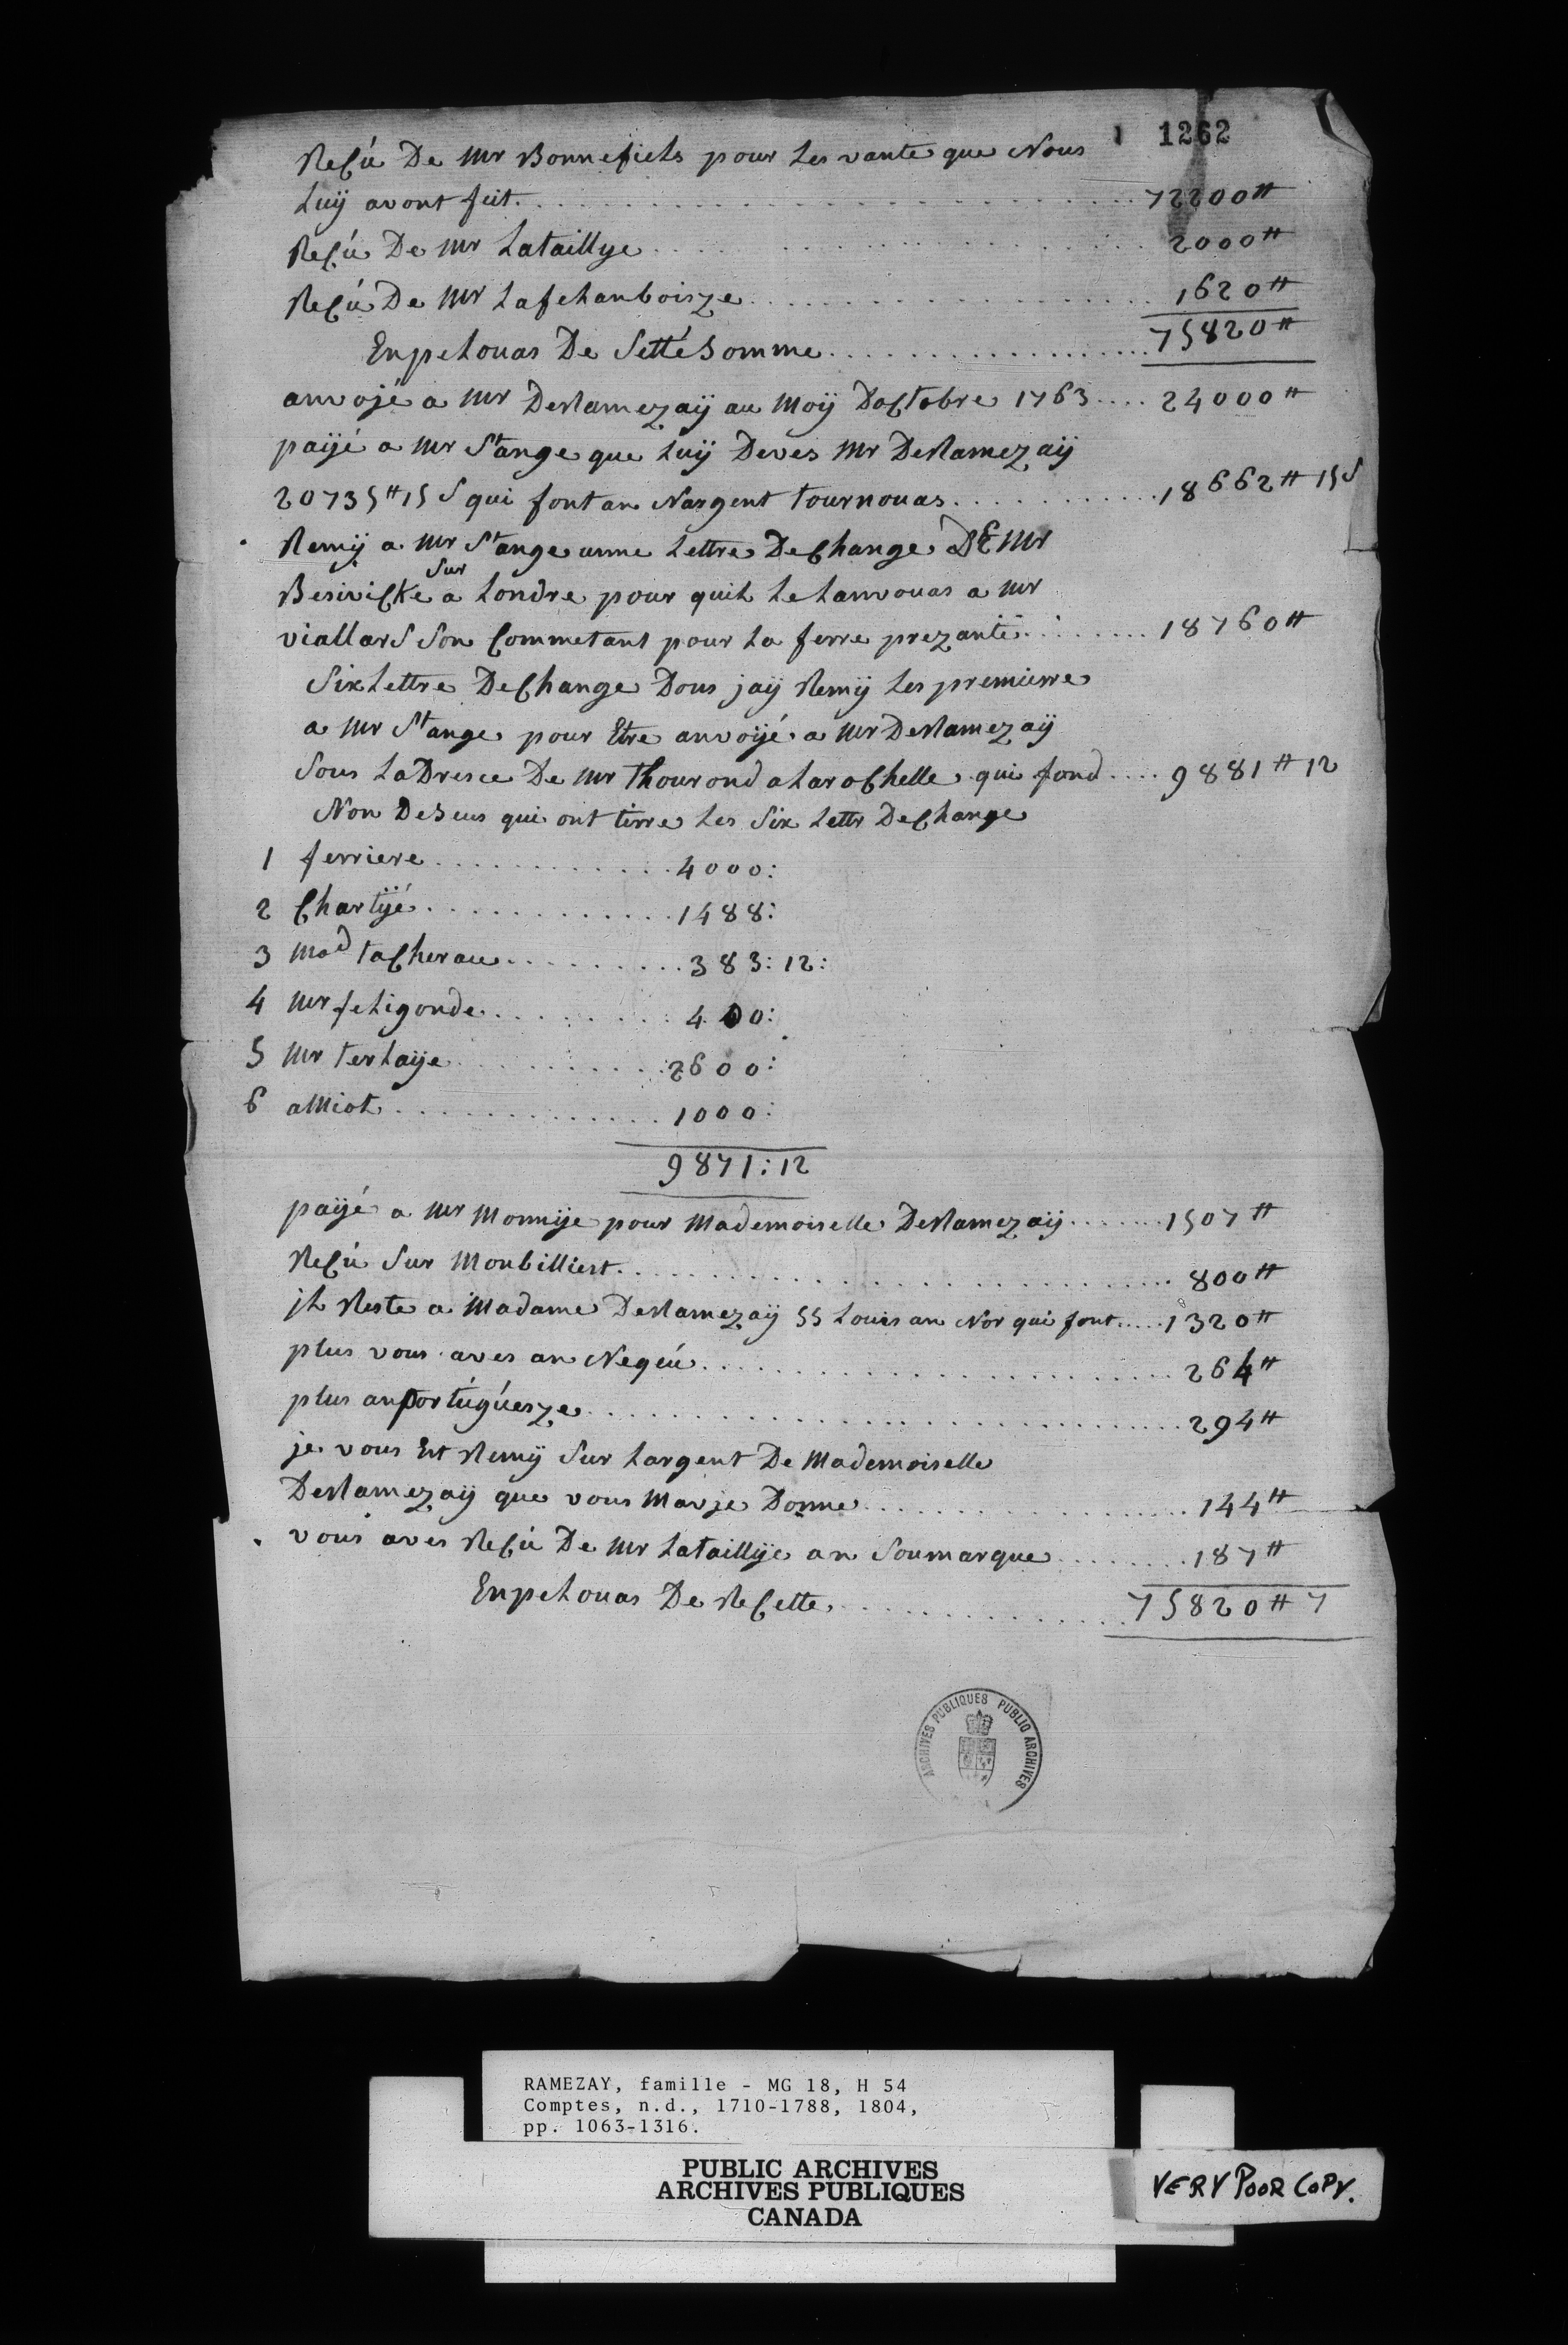 1262
Reçú De Mr Bonnefiels pour les vante que Nous
luÿ avont fuit . . . . . . . . 72200#
Reçú De Mr Lataillye . . . . . . . . 2000#
Reçú De Mr Lafehanboisze . . . . . . . . 1620#
Enpelouas De Setté Somme . . . . . . . . 75820#
anvojé a Mr DeRamezaÿ au Moÿ Doctobre 1763 . . . . 24000#
paÿé a Mr St ange que luÿ Deves Mr DeRamezaÿ
20735# 15 S qui font an Nargent tournouas . . . . . . . . 18662# 15 S
Remÿ a Mr St ange unne lettre DeChange DE Mr
Besivicke Sur a londre pour quil le lanvouas a Mr
viallard Son Commetant pour la ferre prezante . . . . . . . . 18760#
Six lettre DeChange Dous jaÿ Remÿ les premierre
a Mr St ange pour Etre anvoÿé a Mr DeRamezaÿ
Sous laDresce De Mr Thourond a laroChelle qui fond . . . . 9881# 12
Non DeSeus qui ont tirre les Six lettr DeChange
1 ferriere . . . . . . . . 4000:
2 Chartÿé . . . . . . . . 1488:
3 Mad taCherau . . . . . . . . 383: 12:
4 Mr feligonde . . . . . . . . 400:
5 Mr terlaÿe . . . . . . . . 2600:
6 amiot . . . . . . . . 1000:
9871: 12
paÿé a Mr Monnije pour Mademoiselle DeRamezaÿ . . . . . . . 1507#
Reçú Sur Monbilliert . . . . . . . . 800#
jl Reste a Madame DeRamezaÿ 55 louis an Nor qui font . . . . . 1320#
plus vous aves an Neqéú . . . . . . . . 264#
plus anportúgúesze . . . . . . . . 294#
je vous Et Remÿ Sur largent De Mademoiselle
DeRamezaÿ que vous Mavje Donne . . . . . . . . 144#
vous aves Reçú De Mr Lataillÿe an Soumarque . . . . . . . . 187#
Enpelouas De ReCette . . . . . . . . 75820# 7
ARCHIVES PUBLIQUES PUBLIC ARCHIVES
RAMEZAY, famille - MG 18, H 54
Comptes, n.d., 1710-1788, 1804,
pp. 1063-1316.
PUBLIC ARCHIVES
ARCHIVES PUBLIQUES
CANADA
VERY POOR COPY.